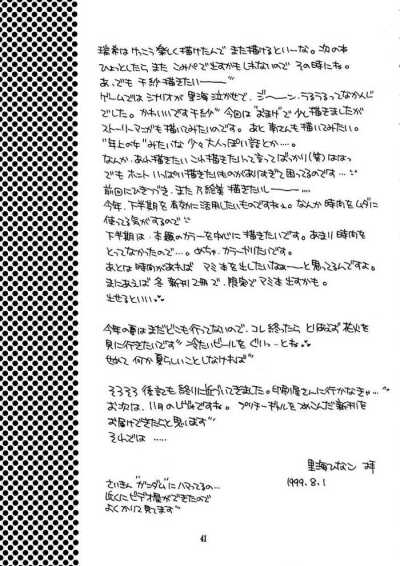 瑞希はけっこう楽しく描けたんで また描けるといーな。次の本
ひょっとしたら また こみパで出すかもしれないので その時にね。
あ、でも 千紗描きたいーーー"
ゲームでは シナリオが 思い泣かせで、ジ〜〜ン・うるうるってなかんじ
でした。かわいいです千紗" 今回は"おまけ"で少し描きましたが
ストーリーマンガも描いてみたいのです。あと 南さんも描いてみたい。
"年上の女"みたいな 少々大人っぽい話とか…。
なんか、あれ描きたい これ描きたいって言ってばっかり(笑)ははっ
でも ホント いっぱい描きたいものがありすぎて困ってるのです…
前回にひきつづき、また 描きたいし…
今年、下半期を有効に活用したいものですねぇ。なんか 時間をムダに
使ってる気がするので
下半期は、本誌のカラーを中心に描きたいです。あまり 時間を
とってなかったので…。めちゃ、カラーやりたいです。
あとは時間があれば マミ本を出したいなぁーと思ってるんですよ。
まにあえば 冬 新刊2冊で、限定で マミ本出すかも。
出せるといい
今年の夏はまだどこも行ってないので、コレ終ったら とりあえず花火を
見に行きたいです 冷たいビールを ぐいっーとね。
せめて何か夏らしいことしなければ"
そろそろ 後記も終りに近づいてきました。印刷屋さんに行かなきゃ…"
お次は、11月の ですね。プリティーギャルをつめこんだ新刊を
お届けできたらと思います"
それでは ……
里海ひなこ 拝
1999.8.1
さいきん "ガンダム"にハマってるの…
近くにビデオ屋ができたので
よくかりて見てます"
41